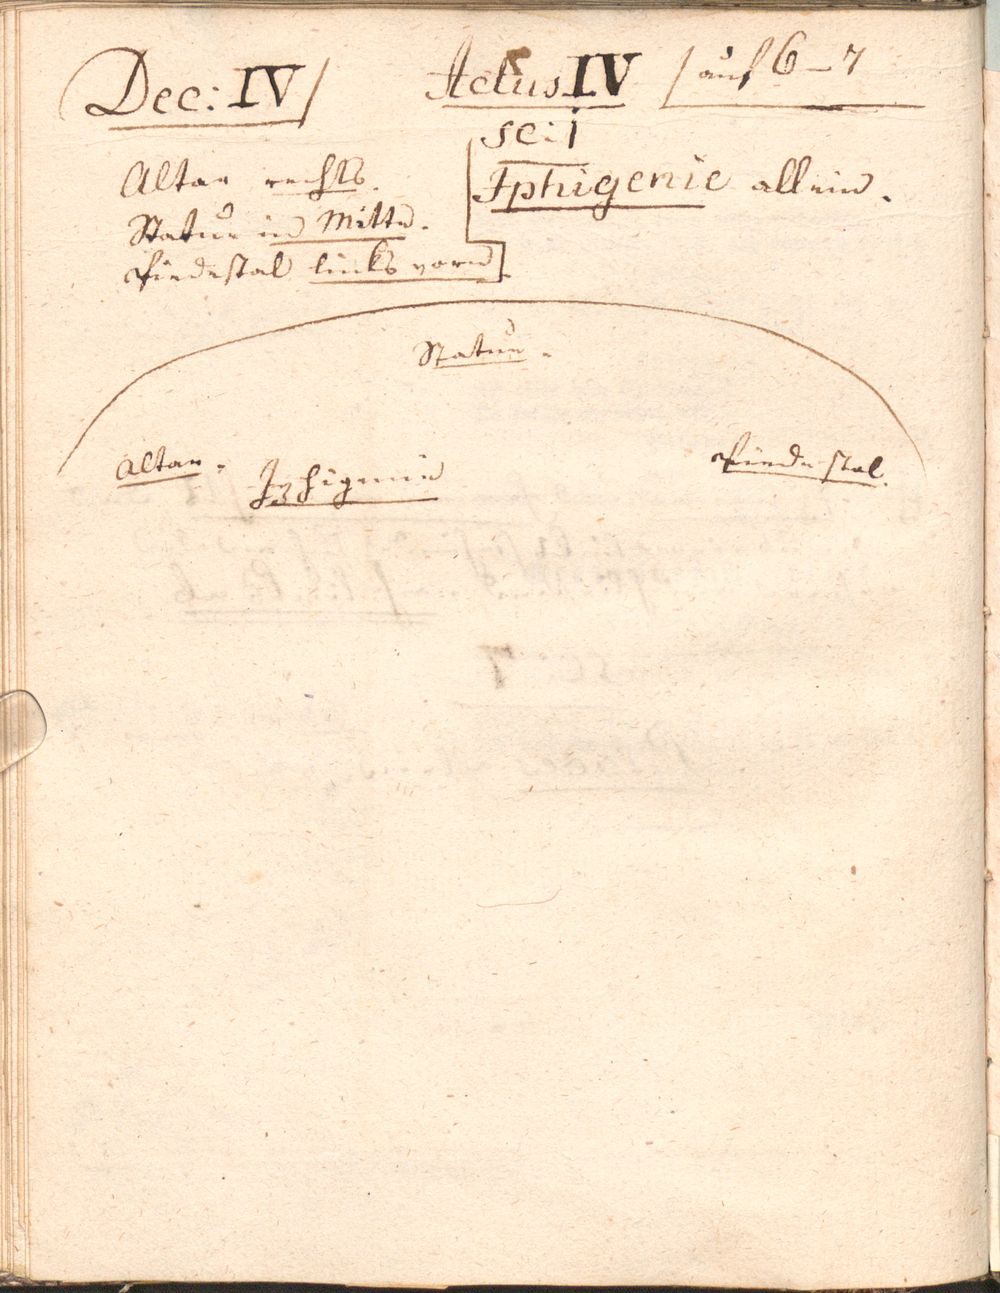 Dec: IV / Actus IV / auf 6–7
sc: 1
Iphigenie allein.
Altar rechts.
Statue in Mitte.
Piedestal links vorn
Statue.
Altar. Iphigenie Piedestal.